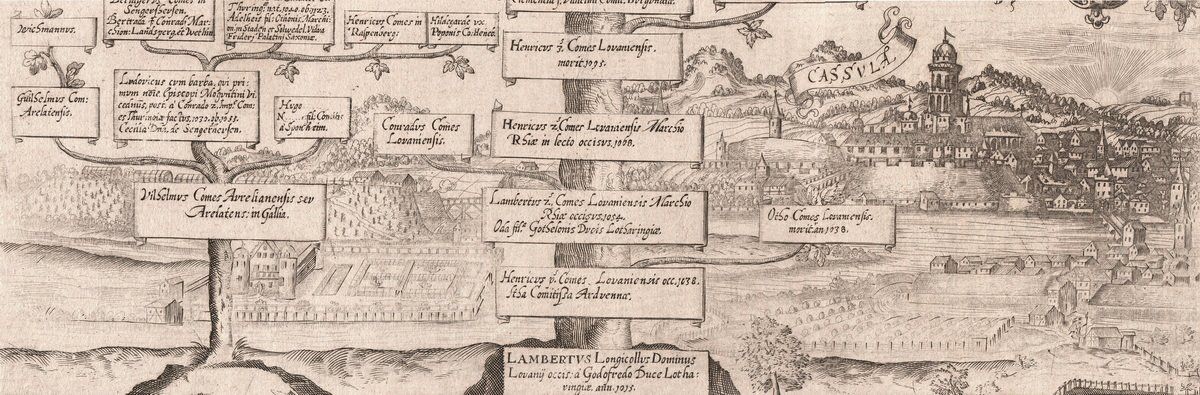 Wichmannus.
Sengerhersen.
Bertrada ỹ Conradi Mar-
chion: Landsperg. et Wettin
Adelheis
on in Staden et Soltwedel. Vidua
Frider: Palatini Saxoniæ.
Henricus Comes in
Raspenberg:
Hildegarde vx.
Poponis Co: Henco.
Henricus 3. Comes Lovaniensis.
morit. 1095.
CASSVLA.
Guilhelmus Com:
Arelatensis.
Ludovicus cum barba, qui pri-
mum
ceanus, post. a Conrado 2. Imp. Com-
es Thuringiæ factus, 1039. ob. 1055.
Cecilia Dna. de Sengerhersen.
Hugo
fil. Comitis
a Sponheim.
Conradus Comes
Lovaniensis.
Henricus 2. Comes Lovaniensis Marchio
Rhiæ in lecto occisus, 1068.
Wilhelmus Comes Avrelianensis sev
Arelatens: in Gallia.
Lambertus 2. Comes Lovaniensis Marchio
Rhiæ occisus, 1054.
Oda fil. Gothelonis Dvcis Lotharingiæ.
Otho Comes Lovaniensis.
morit. an 1038.
Henricus p. Comes Lovaniensis occ. 1038.
Itha Comitissa Ardvennæ.
LAMBERTVS Longicollus Dominus
Lovanij occis: a Godofredo Duce Lotha-
ringiæ. ann. 1015.